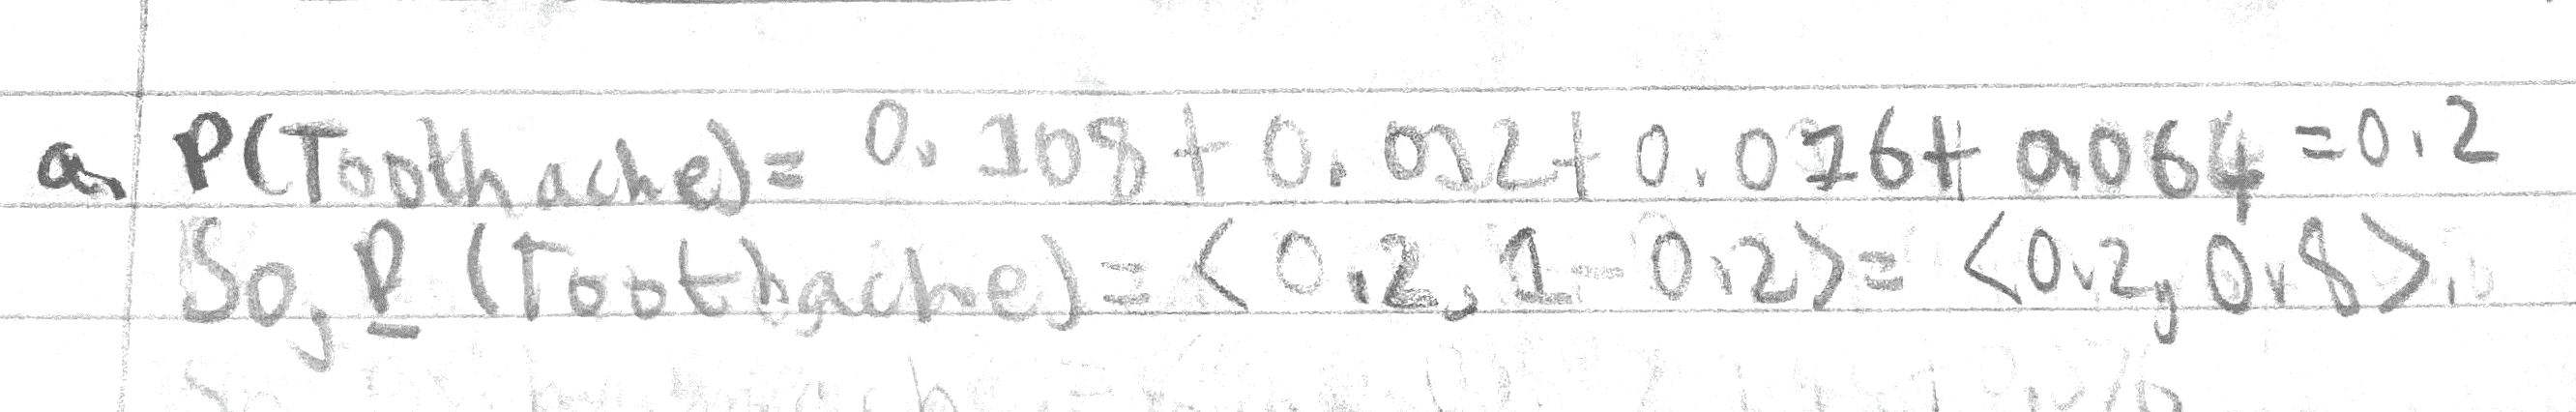 a. P(Toothache) = 0.108 + 0.012 + 0.016 + 0.064 = 0.2
So, P(Toothache) = <0.2, 1-0.2> = <0.2, 0.8>.